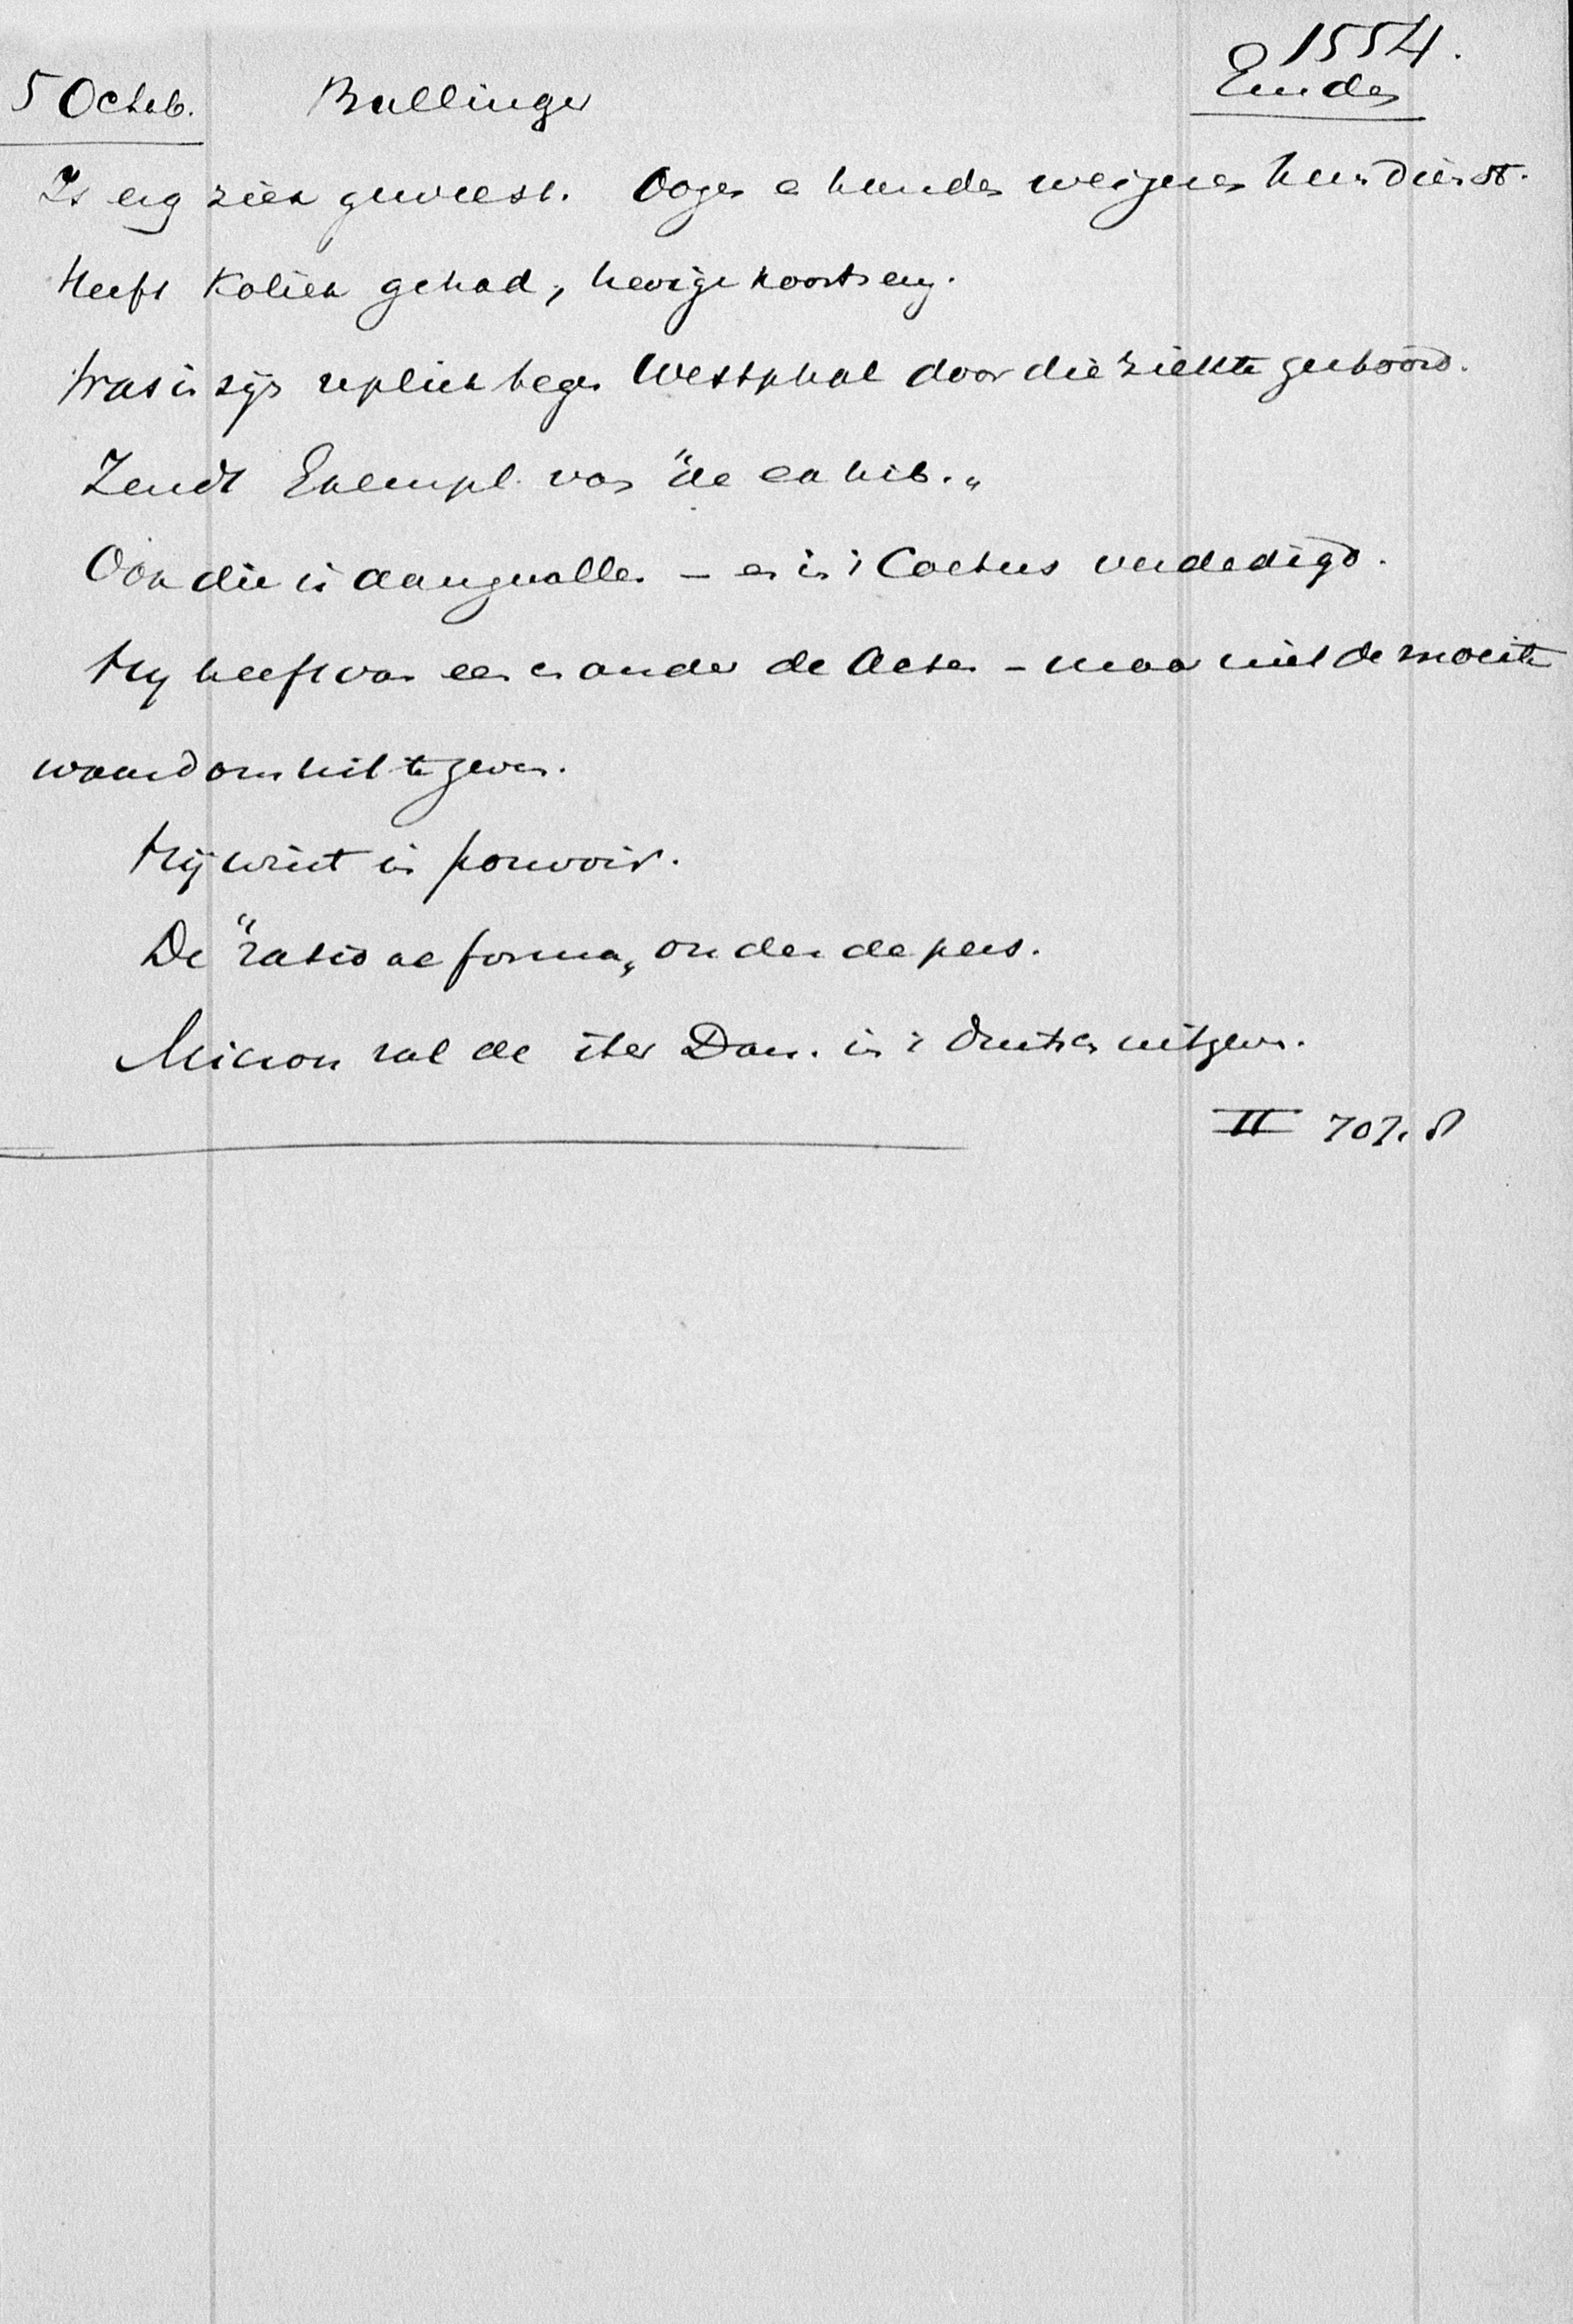 1554.
5 Octob. Bullinger Emden
Is erg ziek geweest. Oogen en handen weigeren hun dienst.
Heeft Koliek gehad, hevige koortsen.
Was in zijn repliek tegen Westphal door die ziekte gestoord.
Zendt Exempl. van "de catech."
Ook die is aangevallen – en in i Coetus verdedigd.
Hij heeft van een en ander de Acten – maar niet de moeite
waard om uit te geven.
Hij wint in pouvoir.
De "ratio ac forma" onder de pers.
Micron zal de iter Dan. in i Duitsch uitgeven.
II 707.8